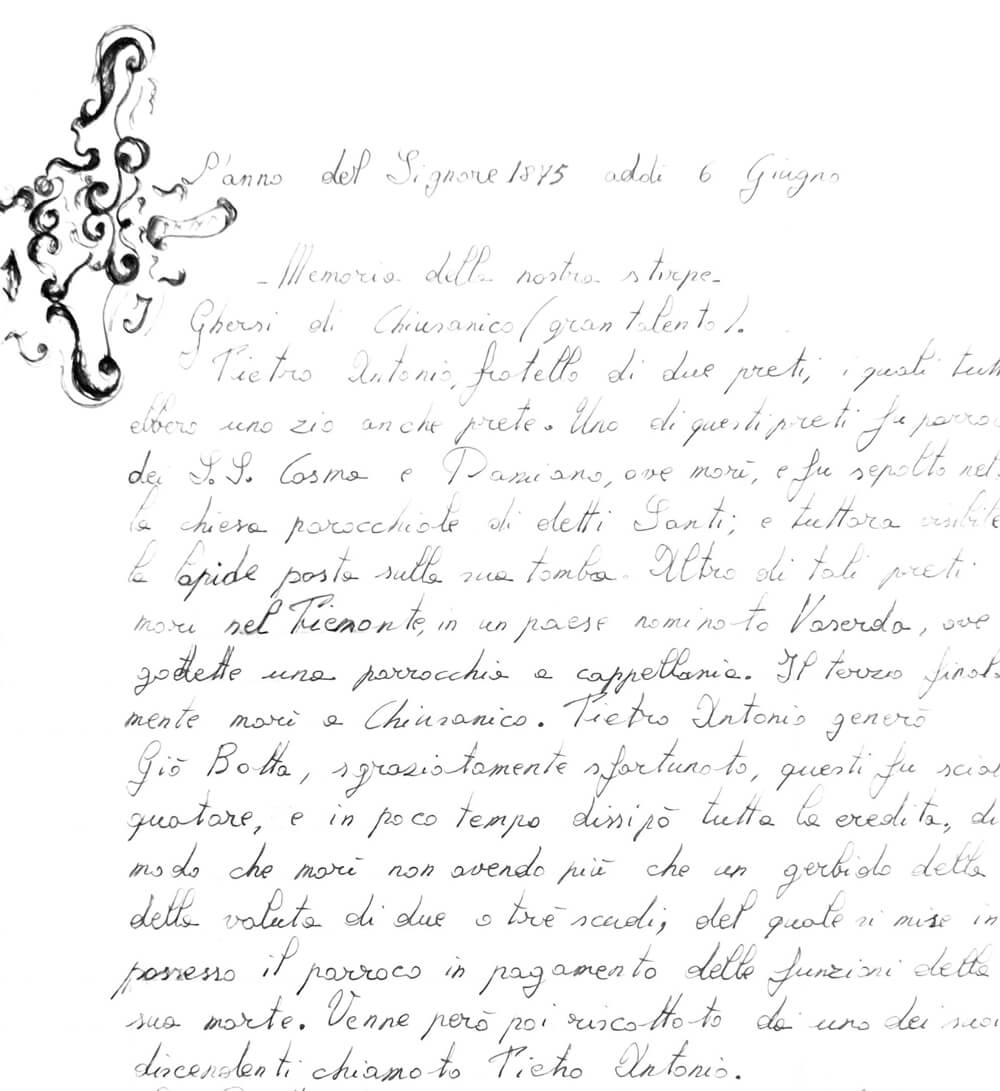 L'anno del Signore 1875 addi 6 Giugno
- Memoria della nostra stirpe -
(I) Ghersi di Chiusanico (gran talento).
Pietro Antonio, fratello di due preti, i quali tutt
ebbero uno zio anche prete. Uno di questi preti fu parro
dei S.S. Cosma e Damiano, ove morì, e fu sepolto nel
la chiesa parocchiale di detti Santi; e tuttora visibile
la lapide posta sulla sua tomba. Altro di tali preti
morì nel Piemonte, in un paese nominato Vaserda, ove
godette una parrocchia o cappellania. Il terzo final
mente morì a Chiusanico. Pietro Antonio generò
Giò Batta, sgraziatamente sfortunato, questi fu scial
quatare, e in poco tempo dissipò tutta la eredità, di
modo che morì non avendo più che un gerbido della
della valuta di due o trè scudi, del quale si mise in
possesso il parroco in pagamento delle funzioni della
sua morte. Venne però poi riscattato da uno dei suoi
discendenti chiamato Pietro Antonio.